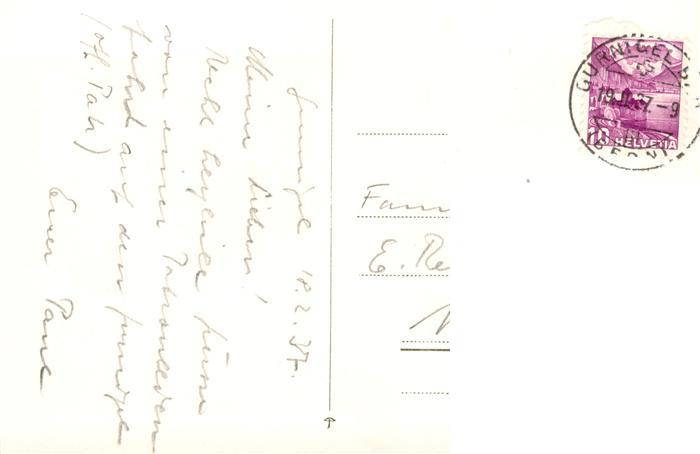 Gurnigel 18.2.37.
Meine Lieben!
Recht herzliche Grüsse
von einer
fahrt auf den Gurnigel
Euer Paul
Fam
E. Re
GURNIGEL
19.II.37.-9
(BERN)
10 HELVETIA